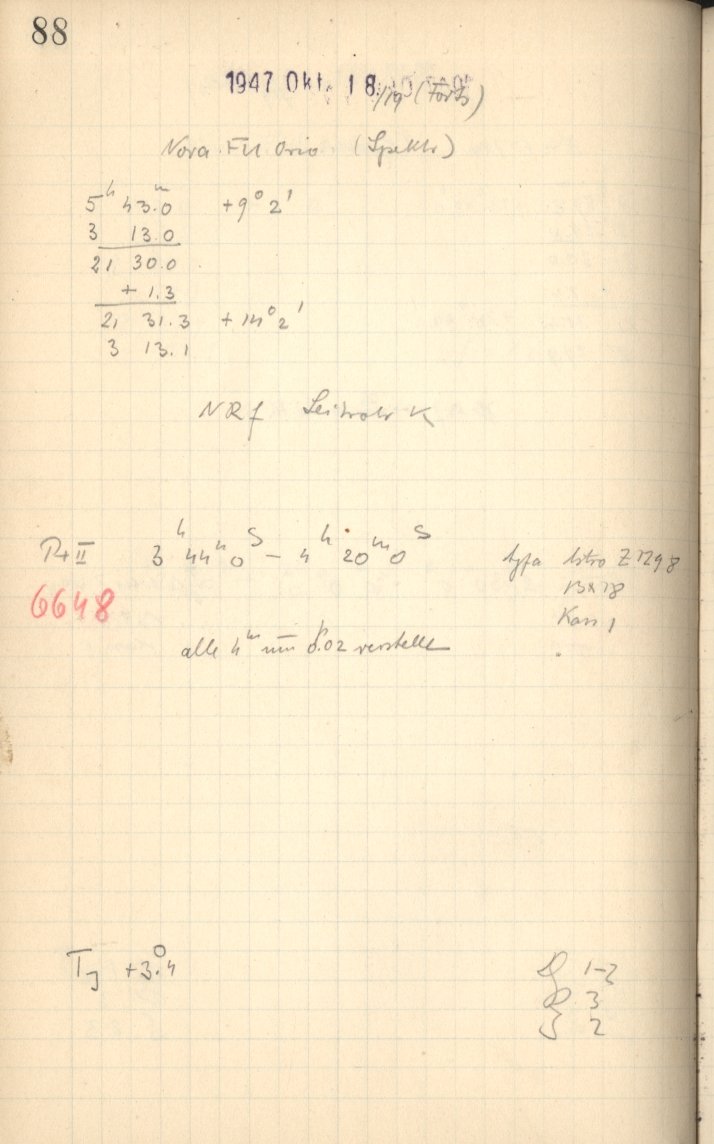 88
1947 Okt. 18./19 (Forts)
Nova FU Orio (Spektr)
5ʰ 43.ᵐ0 +9° 2'
3 13.0
21 30.0
+ 1.3
21 31.3 + 14° 2'
3 13.1
NRf Leitrohr K
Pl II 3ʰ 44ᵐ 0ˢ – 4ʰ 20ᵐ 0ˢ Agfa Astro Z 1298
6648 13x18
Kass 1
alle 4ᵐ um 0.02 verstellt
T +3.°4
1-2
3
2